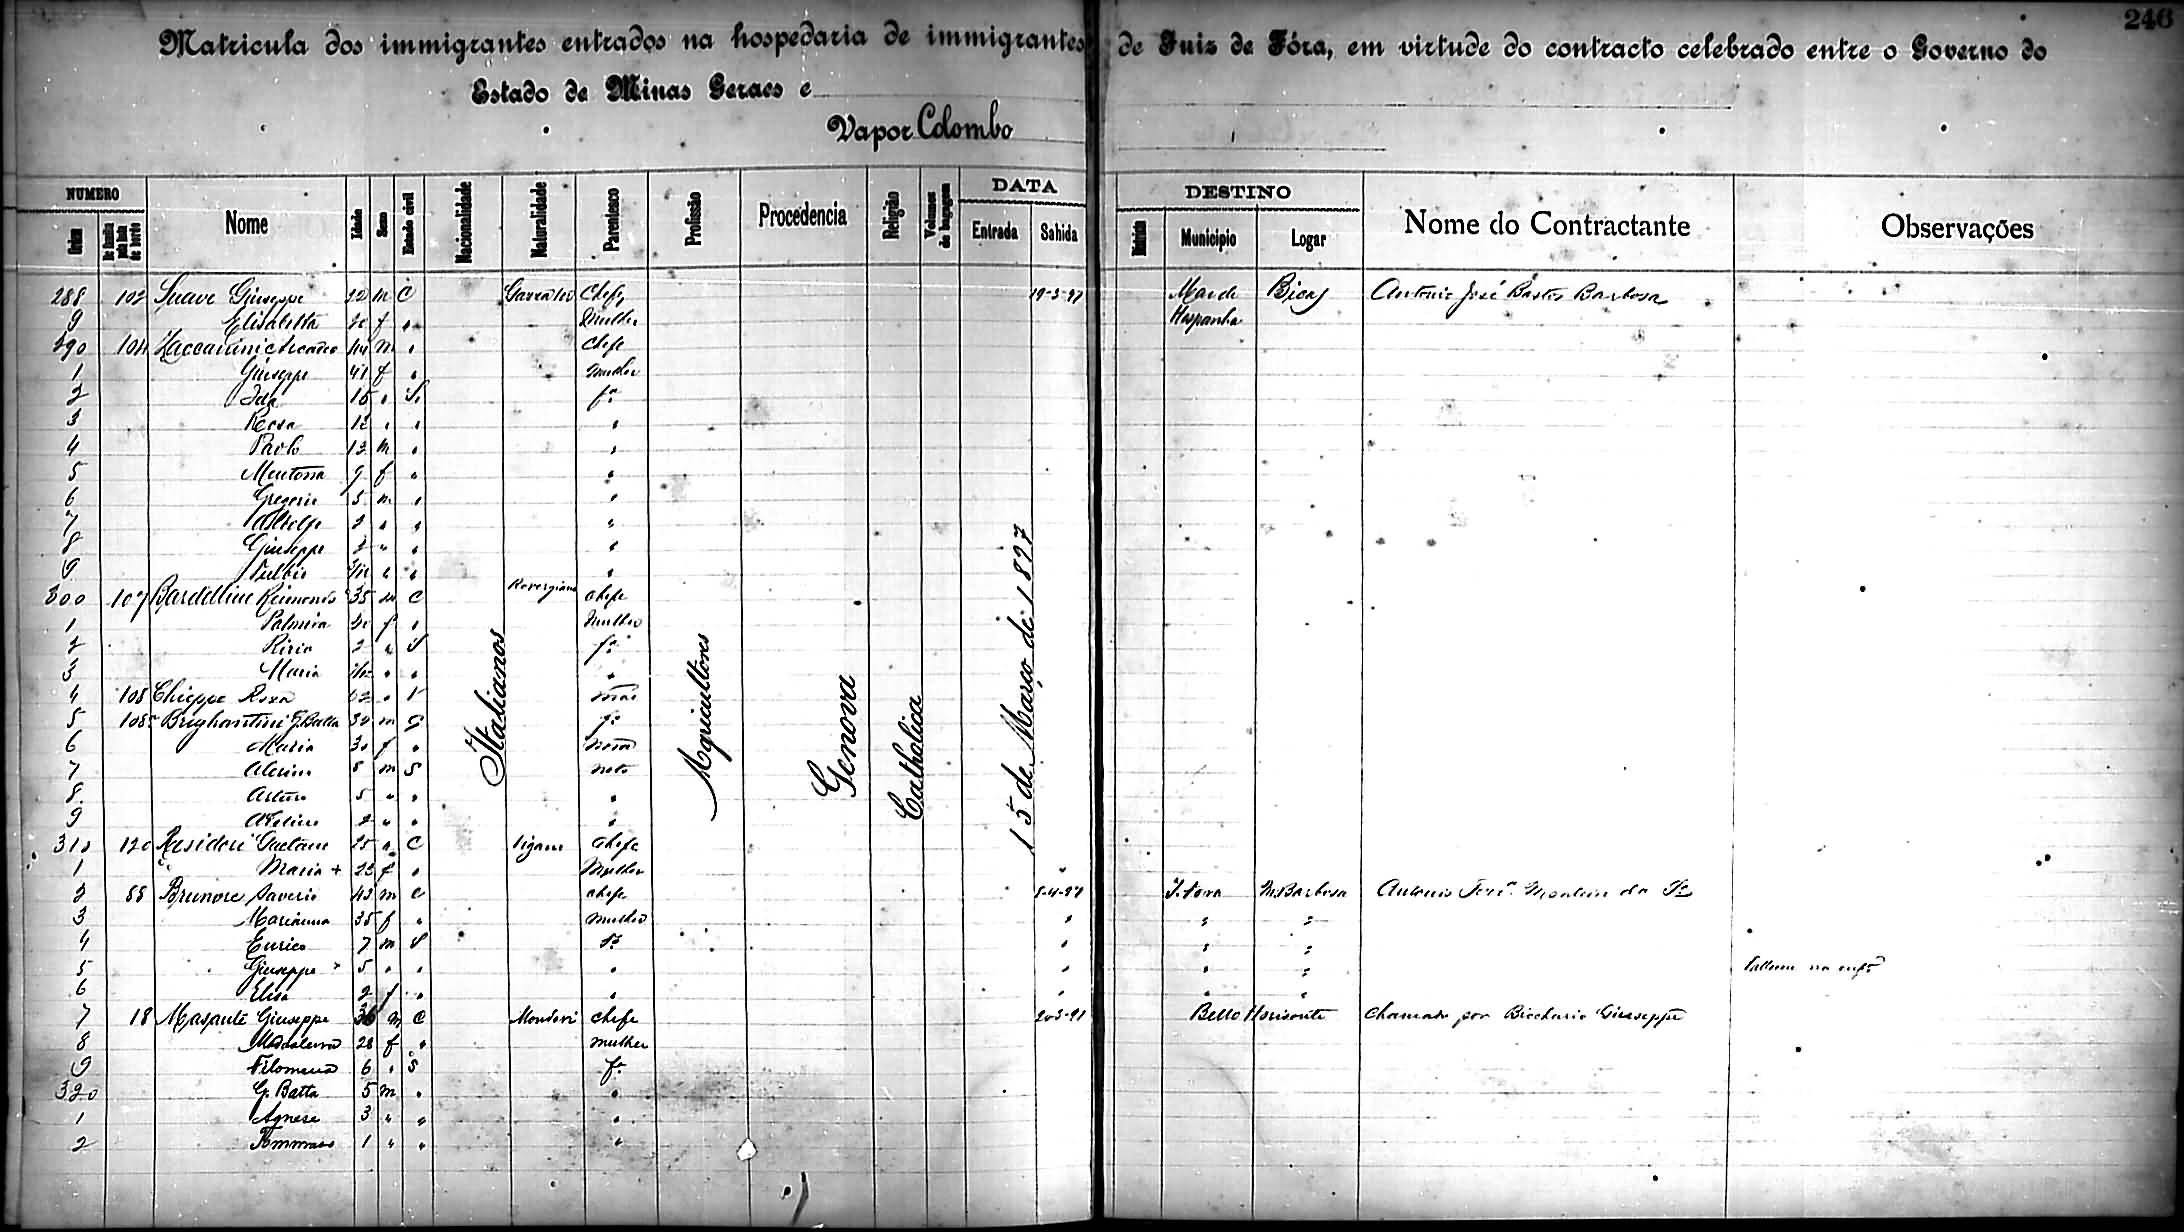 246
Matricula dos immigrantes entrados na hospedaria de immigrantes de Juiz de Fóra, em virtude do contracto celebrado entre o Governo do
Estado de Minas Geraes e
Vapor Colombo
NUMERO DATA DESTINO
Ordem De familia pela lista de bordo Nome Idade Sexo Estado civil Nacionalidade Naturalidade Parentesco Profissão Procedencia Religião Volumes de bagagem Entrada Sahida Municipio Logar Nome do Contractante Observações
Italianos Agricultores Genova Catholica 15 de Março de 1897
288 102 Suave Giuseppe 22 m C Chefe 19-3-97 Mar de Bicas Antonio José Bastos Barbosa
9 Elisabetta f " Mulher Hespanha
290 104 44 m " Chefe
1 Giuseppe 41 f " Mulher
2 Ida 15 " S. fª
3 Rosa 12 " " "
4 Paolo 12 m " "
5 9 f " "
6 Gregorio 5 m " "
7 2 " " "
8 Giuseppe 2 " " "
9 " " "
300 107 Bardelline Raimondo 35 m C Chefe
1 Palmira f " Mulher
2 2 " S fª
3 Maria " " "
4 108 Chieppe Rosa 62 " V mãe
5 1085 Brighantini G. Batta 30 m C fº
6 Maria 30 f " nora
7 8 m S neto
8 Arturo 5 " " "
9 2 " " "
310 120 Residori Gaetano 25 " C Chefe
1 " Maria + 22 f " Mulher "
2 55 Brunore Saverio 43 m C chefe 5-4-97 M. Barbosa Antonio Monteiro da Sª
3 Marianna 35 f " mulher " " "
4 Enrico 7 m S fº " " "
5 Giuseppe 5 " " " " " "
6 Elisa 2 f " " " " "
7 18 Masante Giuseppe 36 m C Mondovi chefe 20-3-97 Bello Horisonte Chamado por Giuseppe
8 Maddalena 28 f " mulher
9 Filomena 6 " S fª
320 G. Batta 5 m " "
1 Agnese 3 " " "
2 Tommaso 1 " " "